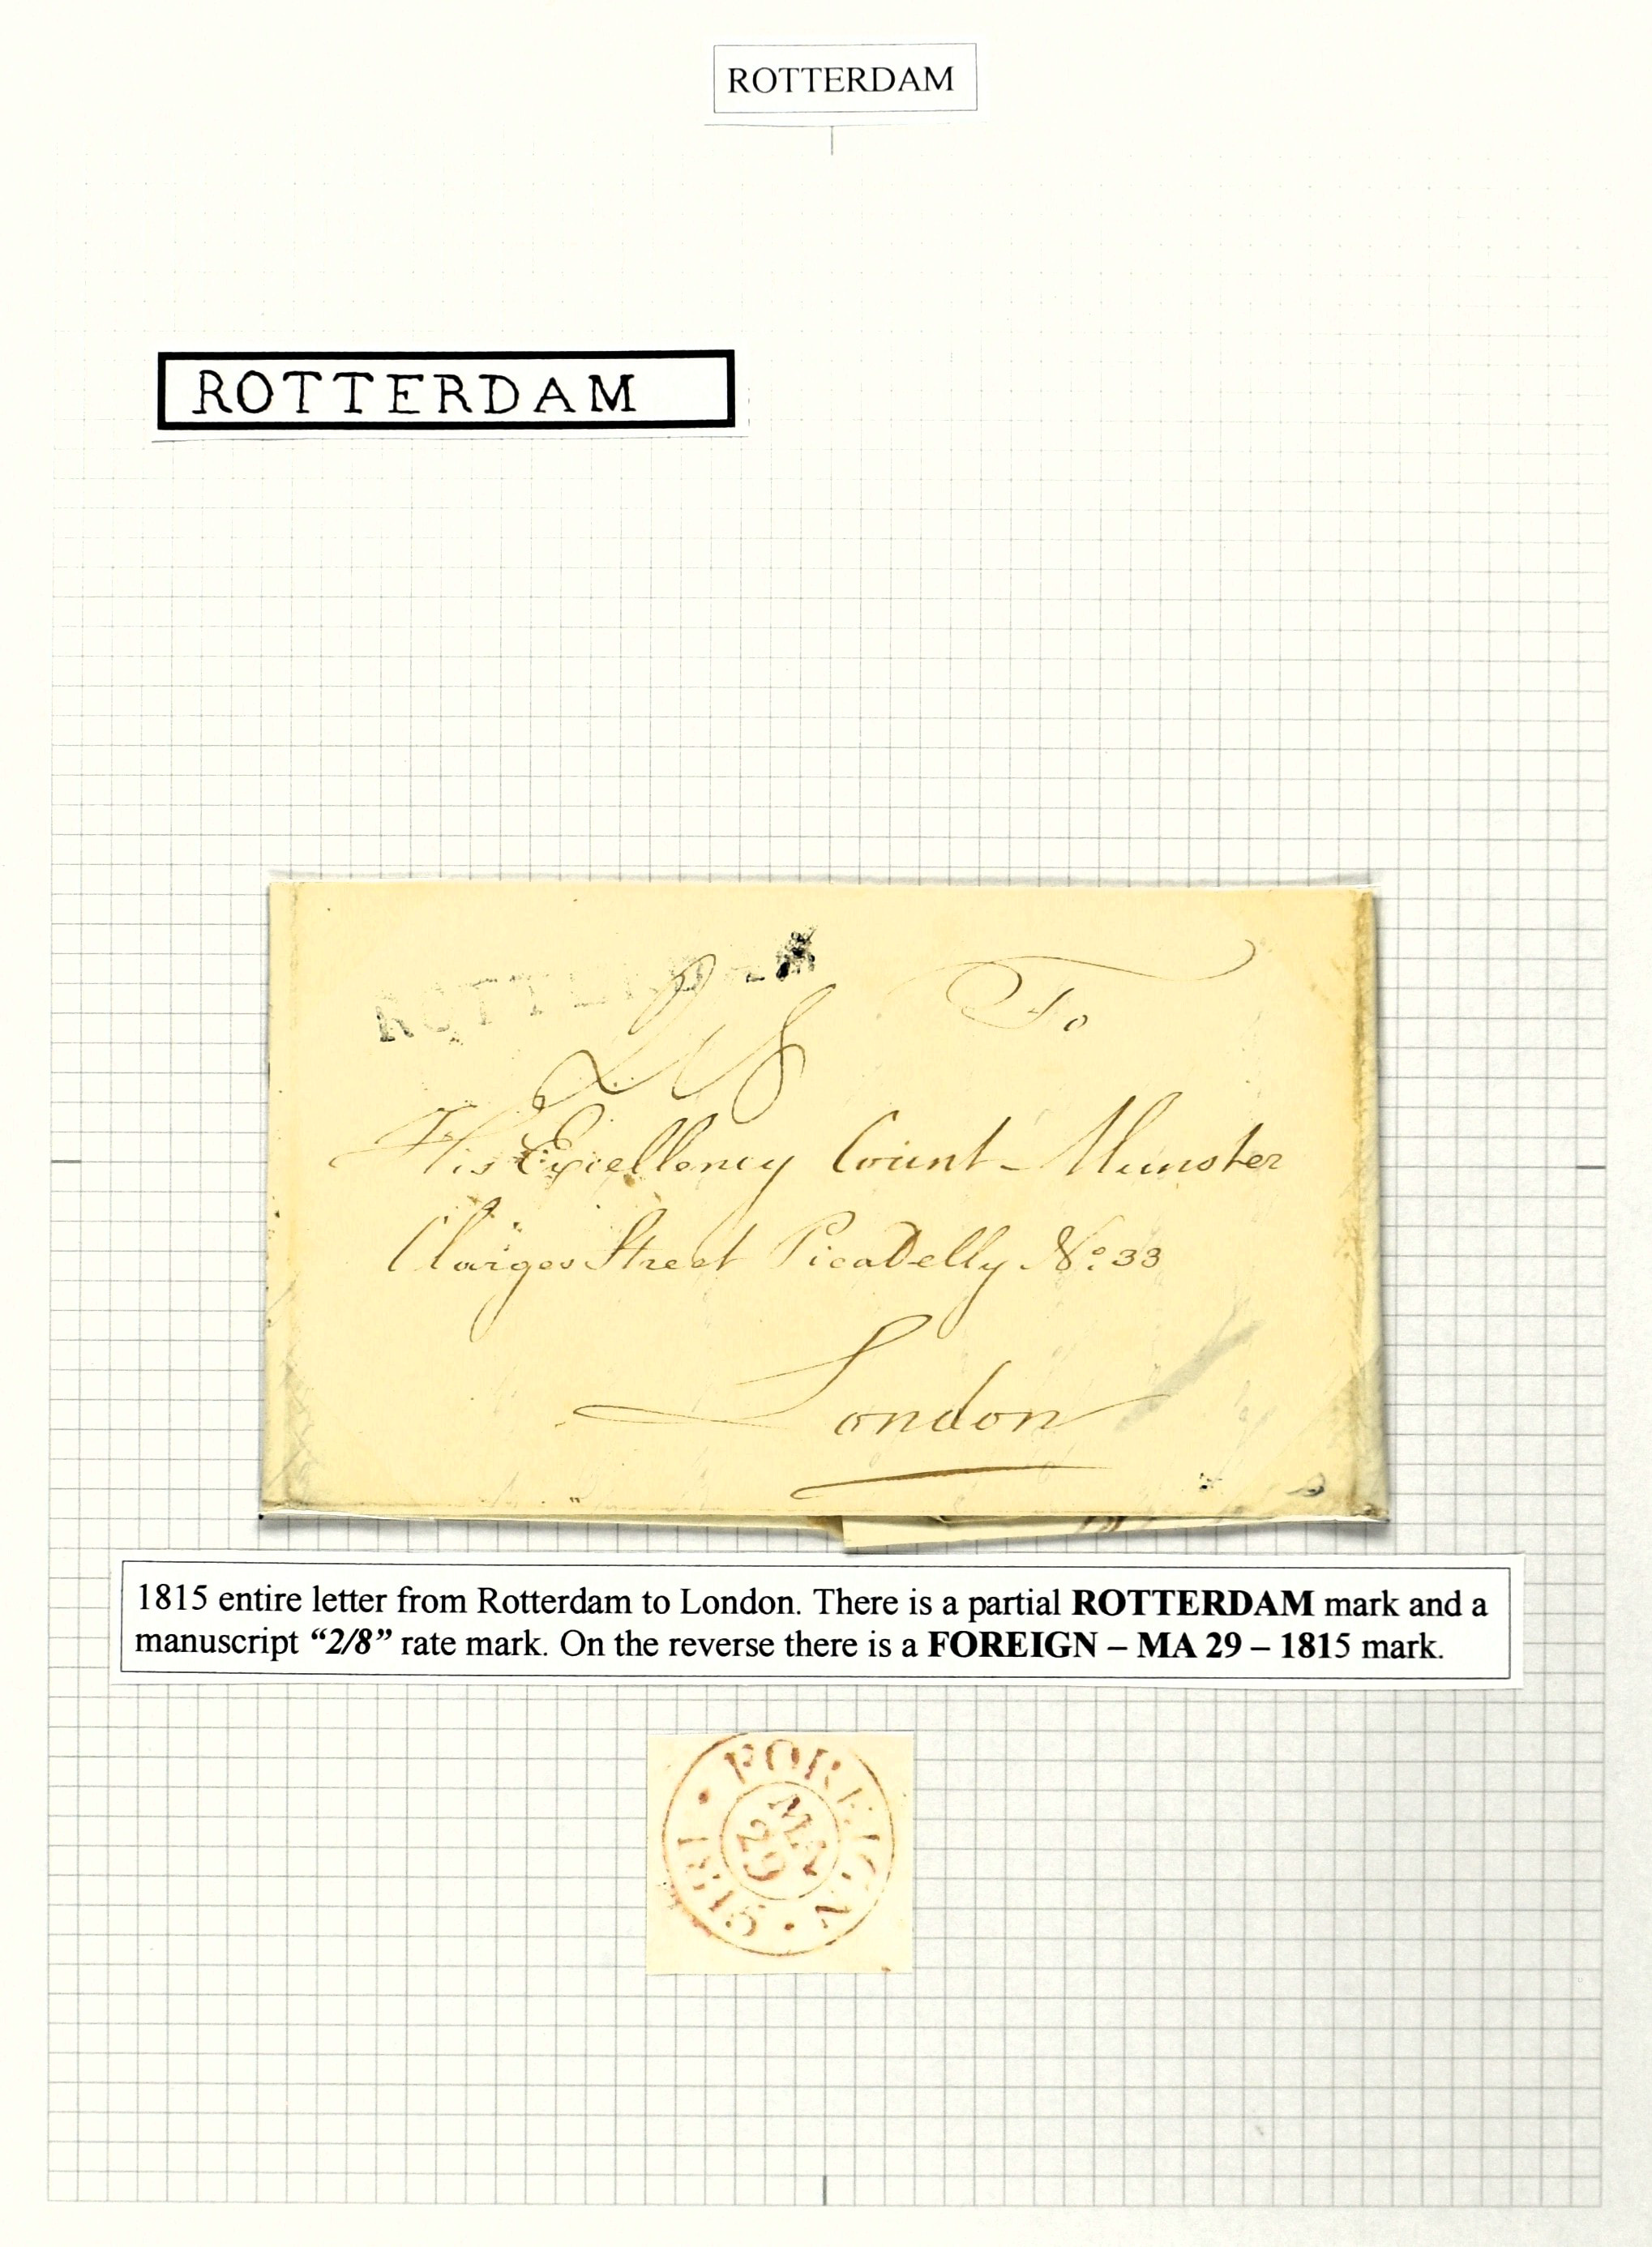 ROTTERDAM
ROTTERDAM
ROTTERDAM
To
2/8
His Excellency Count Munster
Clarges Street Picadelly No. 33
London
1815 entire letter from Rotterdam to London. There is a partial ROTTERDAM mark and a
manuscript “2/8” rate mark. On the reverse there is a FOREIGN – MA 29 – 1815 mark.
FOREIGN
MA
29
1815